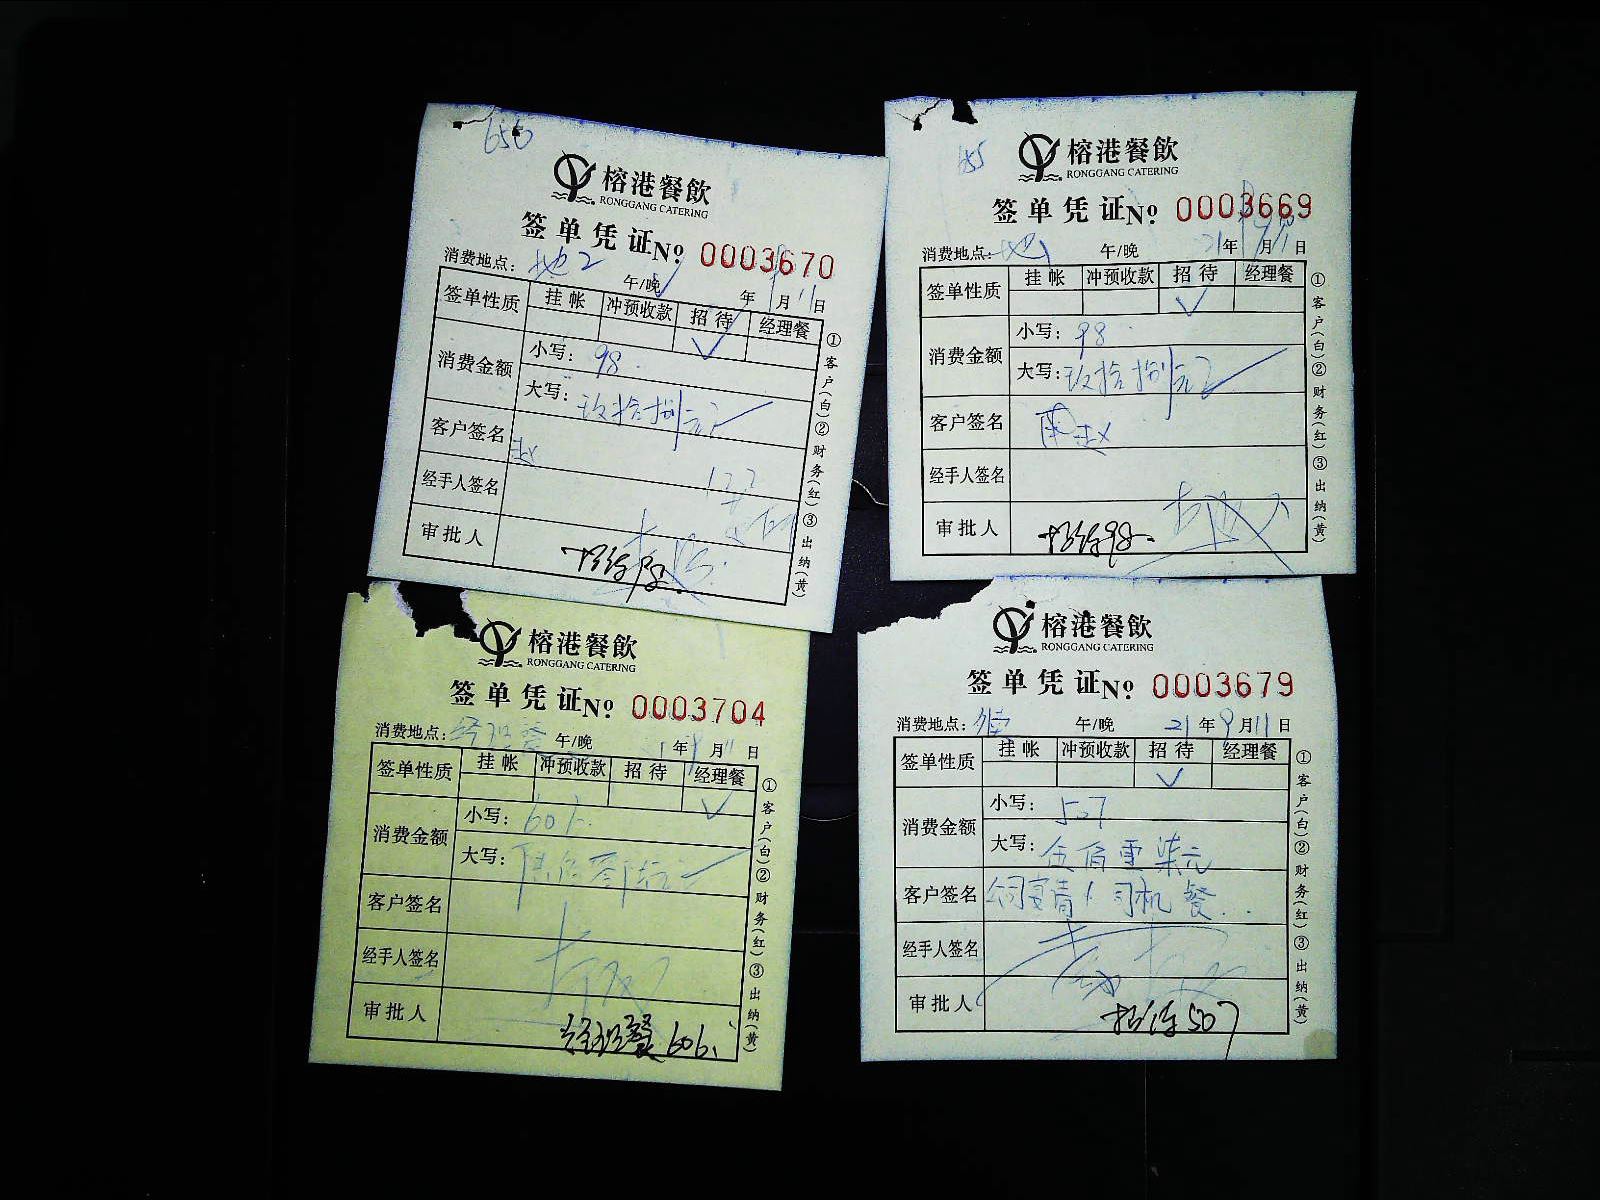 656
榕港餐飲
RONGGANG CATERING
签单凭证№ 0003670
消费地点: 地2 午/晚 年 9月11日
签单性质 挂帐 冲预收款 招待 经理餐
✓
消费金额 小写: 98.
大写: 玖拾捌元
客户签名 赵
经手人签名
审批人 招待98.
①客户(白)②财务(红)③出纳(黄)
655
榕港餐飲
RONGGANG CATERING
签单凭证№ 0003669
消费地点: 午/晚 21年9月11日
签单性质 挂帐 冲预收款 招待 经理餐
✓
消费金额 小写: 98.
大写: 玖拾捌元
客户签名 赵
经手人签名
审批人 招待98.
①客户(白)②财务(红)③出纳(黄)
榕港餐飲
RONGGANG CATERING
签单凭证№ 0003704
消费地点: 经理餐 午/晚 年9月11日
签单性质 挂帐 冲预收款 招待 经理餐
✓
消费金额 小写: 606.
大写: 陆佰零陆元
客户签名
经手人签名
审批人 经理餐606.
①客户(白)②财务(红)③出纳(黄)
榕港餐飲
RONGGANG CATERING
签单凭证№ 0003679
消费地点: 午/晚 21年9月11日
签单性质 挂帐 冲预收款 招待 经理餐
✓
消费金额 小写: 507
大写: 伍佰零柒元
客户签名 公司宴请/司机餐..
经手人签名
审批人 招待507
①客户(白)②财务(红)③出纳(黄)